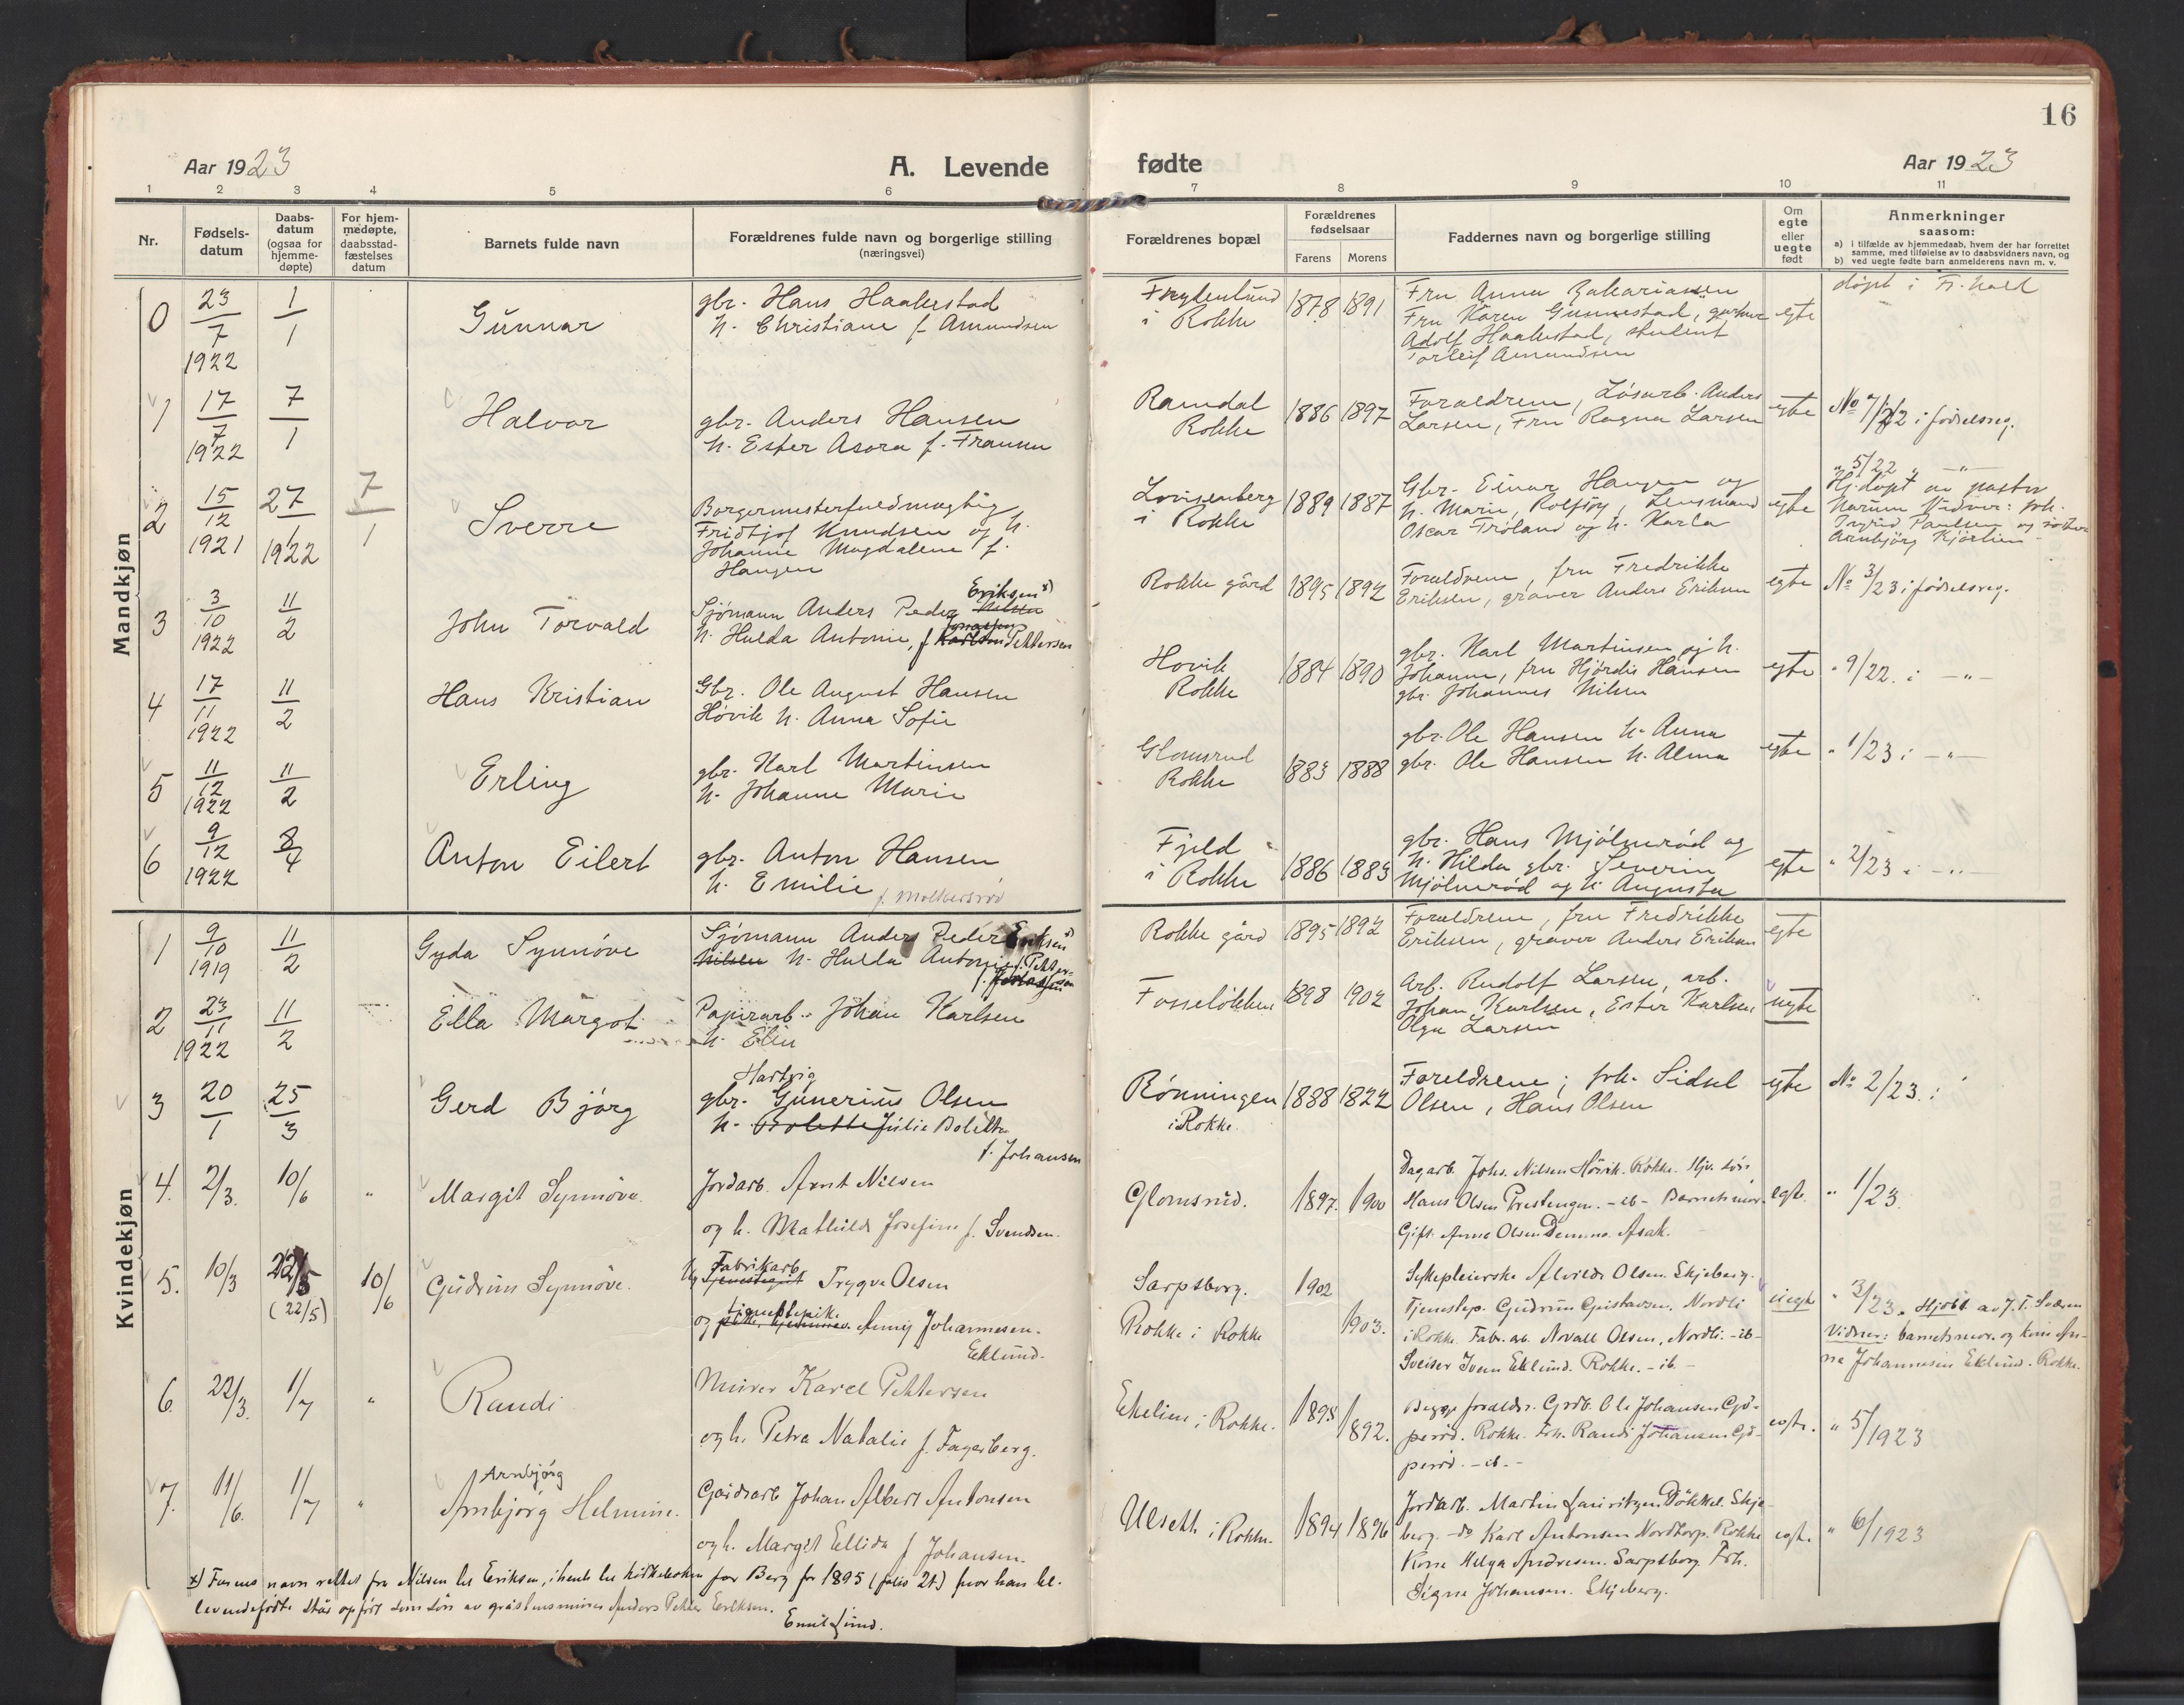 16
Aar 1923
A. Levende
fødte
Aar 1923
1 2 3 4 5 6 7 8 9 10 11
Nr.
Fødsels-
datum
Daabs-
datum
(ogsaa for
hjemme-
døpte)
For hjem-
medøpte,
daabsstad-
fæstelses
datum
Barnets fulde navn
Forældrenes fulde navn og borgerlige stilling
(næringsvei)
Forældrenes bopæl
Forældrenes
fødselsaar
Farens Morens
Faddernes navn og borgerlige stilling
Om
egte
eller
uegte
født
Anmerkninger
saasom:
a) i tilfælde av hjemmedaab, hvem der har forrettet
samme, med tilføielse av to daabsvidners navn, og
b) ved uegte fødte barn anmelderens navn m. v.
Mandkjøn
0
23/7
1922
1/1
Gunnar
gbr. Hans Haakestad
h. Christiane f. Amundsen
Frydenlund
i Rokke
1878 1891
Fru Anna Zakariassen
Fru Karen Gunnestad,
Adolf Haakestad, student
Torleif Amundsen
egte
døpt i Fr.hald
1
17/7
1922
7/1
Halvor
gbr. Anders Hansen
h. Ester Asora f. Fransen
Ramdal
Rokke
1886 1897
Foraldrene, Løsarb. Anders
Larsen, Fru Ragna Larsen
egte
No 7/22 i fødselsreg.
2
15/12
1921
27/1
1922
7/1
Sverre
Borgermesterfuldmægtig
Fridtjof Knudsen og h.
Johanne Magdalene f.
Hangen
Lovisenberg
i Rokke
1889 1887
Gbr. Einar Hangen og
h. Marie, Rolfsøy, Lensmand
Oscar Trøland og h. Karla
egte
" 5/22 " —"—
Hj.døpt av pastor
Narum Vidner: frk.
Ingrid Paulsen og søster
Arnbjørg Kjørlien
3
3/10
1922
11/2
John Torvald
Eriksen x)
Sjømann Anders Peder Nilsen
h. Hulda Antonie, f. Karlsen Pettersen
Rokke gård
1895 1892
Foraldrene, fru Fredrikke
Eriksen, graver Anders Eriksen
egte
No 3/23 i fødselsreg.
4
17/11
1922
11/2
Hans Kristian
Gbr. Ole August Hansen
Høvik h. Anna Sofie
Hovik
Rokke
1884 1890
gbr. Karl Martinsen og h.
Johanne, fru Hjørdis Hansen
gbr. Johannes Nilsen
egte
" 9/22 i —"—
5
11/12
1922
11/2
Erling
gbr. Karl Martinsen
h. Johanne Marie
Glomsrud
Rokke
1883 1888
gbr. Ole Hansen h. Anna
gbr. Ole Hansen h. Alma
egte
" 1/23 i —"—
6
9/12
1922
8/4
Anton Eilert
gbr. Anton Hansen
h. Emilie
Fjeld
i Rokke
1886 1883
gbr. Hans Mjølnerød og
h. Hilda gbr. Severin
Mjølnerød og h. Augusta
egte
" 2/23 i —"—
Kvindekjøn
1
9/10
1919
11/2
Gyda Synnøve
Sjømann Anders Peder Eriksen x)
Nilsen h. Hulda Antonie f. Petter-
sen
Rokke gård
1895 1892
Foraldrene, fru Fredrikke
Eriksen, graver Anders Eriksen
egte
2
23/11
1922
11/2
Ella Margot
Papirarb. Johan Karlsen
h. Elin
Fosseløkken
1898 1902
Arb. Rudolf Larsen, arb.
Johan Karlsen, Ester Karlsen
Olga Larsen
uegte
3
20/1
25/3
Gerd Bjørg
Hartvig
gbr. Gunerius Olsen
h. Bolette Julie Bolette
f. Johansen
Rønningen
i Rokke.
1888 1822
Foreldrene; frk. Sidsel
Olsen, Hans Olsen
egte
No 2/23 i
4.
2/3.
10/6
"
Margit Synnøve.
Jordarb. Arnt Nilsen
og h. Mathilde Josefine f. Svendsen.
Glomsrud.
1897. 1900
Dagarb. Johs. Nilsen Hövik. Rokke. Hjv. søn
Hans Olsen Prestengen. - ib - Barnets mor.
Gift. Anna Olsen Asak.
egte.
" 1/23.
5.
10/3
22/5
(22/5)
10/6
Gudrun Synnøve.
Fabrikarb.
Trygve Olsen
og Anny Johannesen.
Eklund.
Sarpsborg.
Rokke i Rokke
1902
1903.
Sykepleierske Alvilde Olsen. Skjeberg.
Tjenestep. Gudrun Gustavsen. Nordli
i Rokke. Fabr. arb. Norvall Olsen, Nordli. - ib -
Sveiser Sven Eklund. Rokke. - ib. -
uegte
" 3/23. Hjdbt. av J. T.
Vidner: barnets mor. og kone An-
na Johannesen Eklund. Rokke.
6.
22/3.
1/7
"
Randi
Murer Karel Pettersen
og h. Petra Natalie f. Fagerberg.
Ekelien i Rokke.
1895
1892.
Begge foraldr. Grdb. Ole Johansen Gjø-
perød. Rokke. Frk. Randi Johansen Gjø-
perød. - ib. -
egte.
" 5/1923
7.
11/6.
1/7
"
Arnbjörg
Arnbjörg Helmine.
Gårdsarb. Johan Albert Antonsen
og h. Margit Ellida f. Johansen.
Ulseth i Rokke.
1894 1896
Jordarb. Martin Lauritzen Dökkel. Skje-
berg. - do Karl Antonsen Nordtorp. Rokke
Kone Helga Andresen. Sarpsborg. Frk.
Signe Johansen. Skjeberg.
egte.
" 6/1923
x) Farens navn rettet fra Nilsen til Eriksen, i henh. til kirkeboken for Berg for 1895 (folio 21) hvor han bl.
levendefødte står opført som søn av gråstensmurer Anders Petter Eriksen.
Emil Lund.